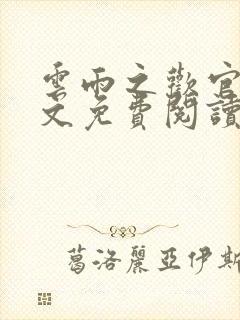 雲雨之歡官
文免費閱讀
葛洛麗亞伊斯